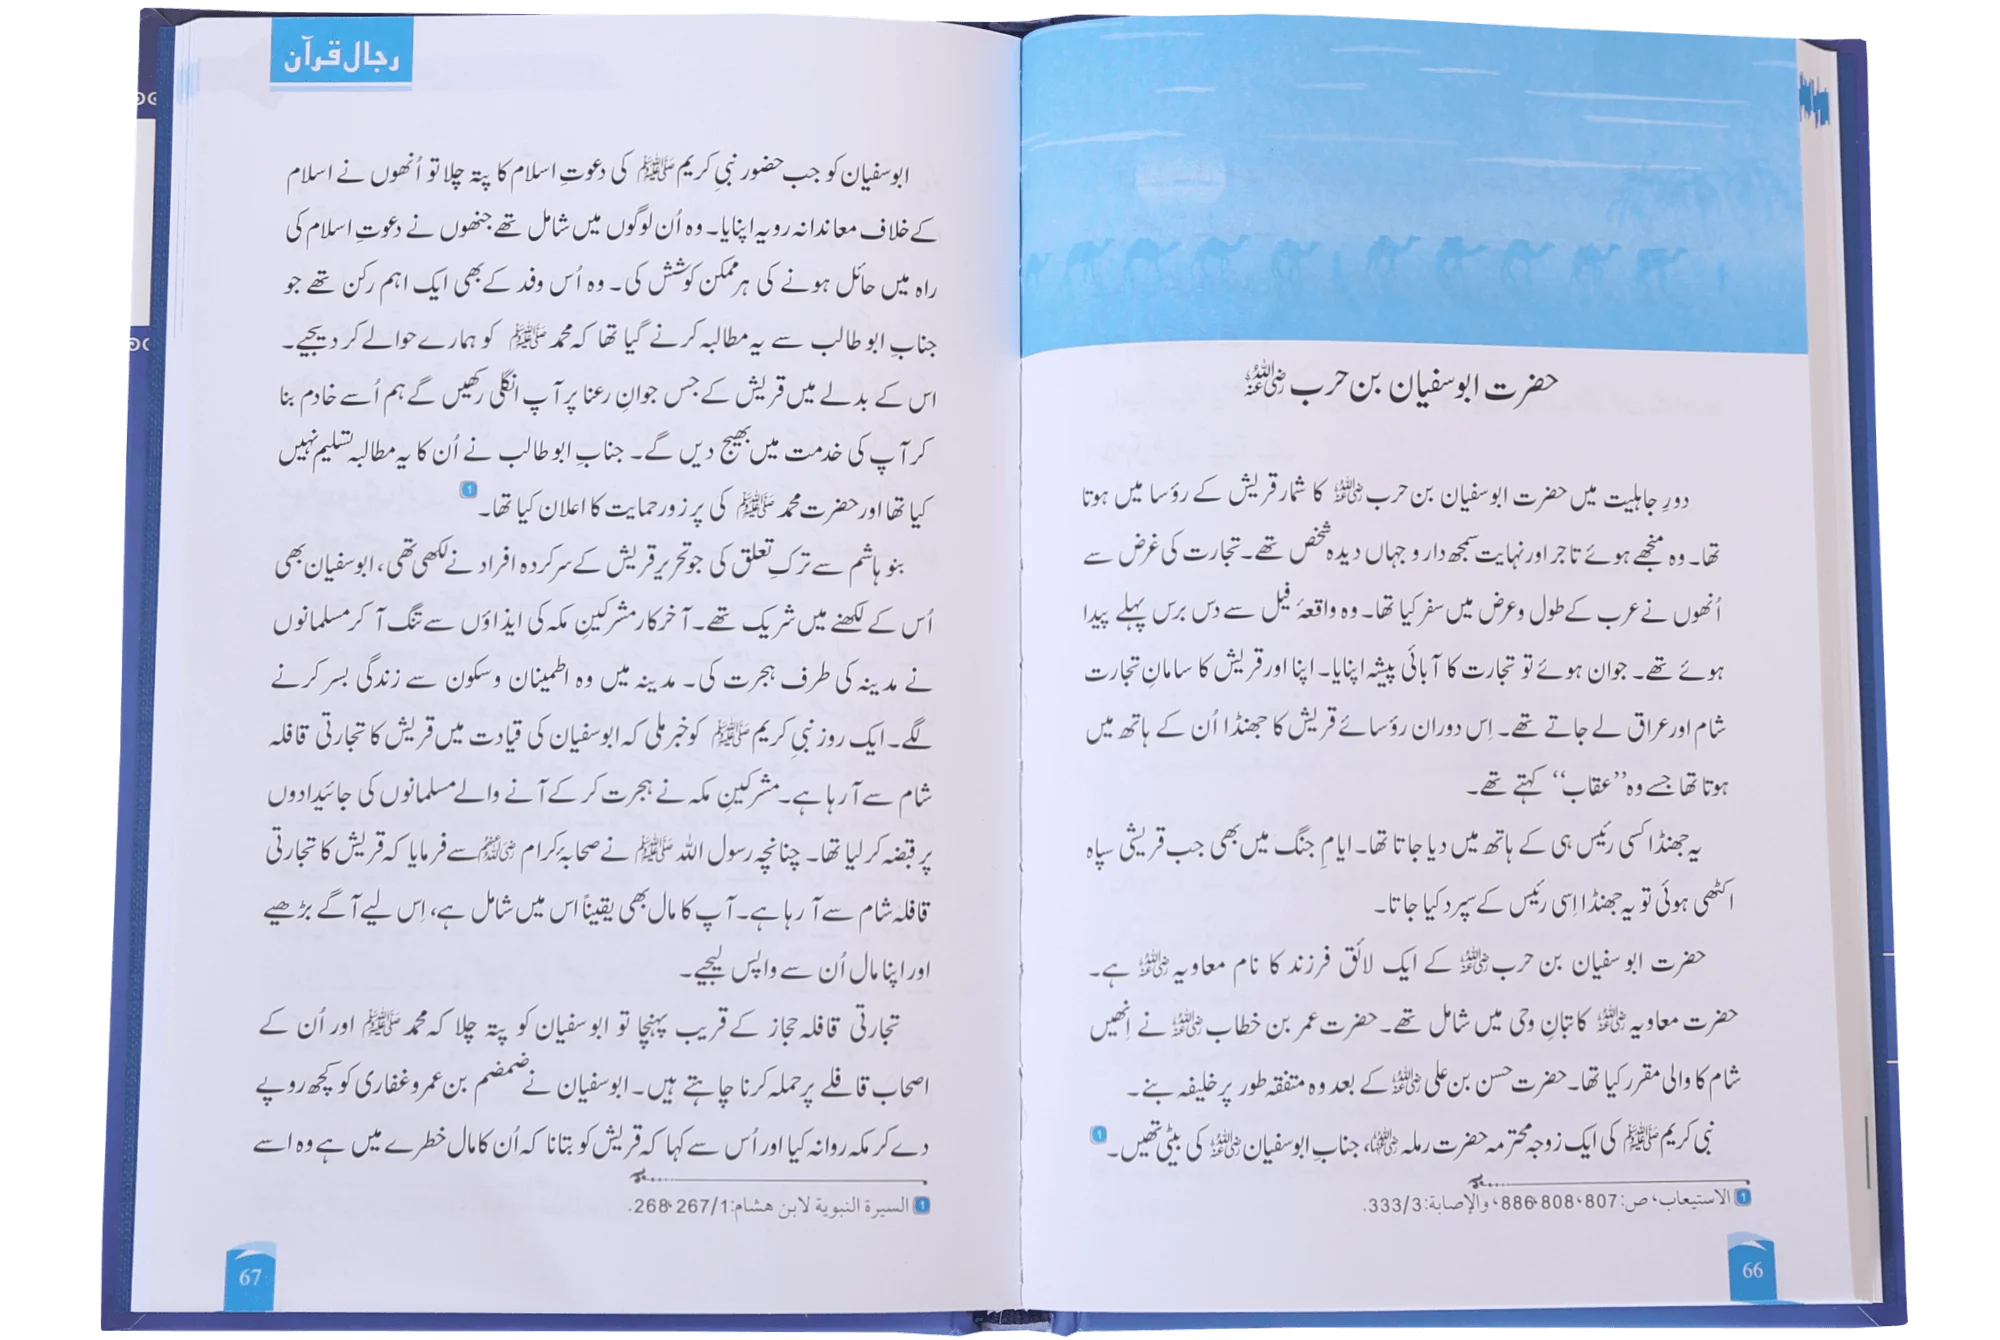 حضرت ابوسفیان بن حرب رضی اللہ عنہ
دورِ جاہلیت میں حضرت ابوسفیان بن حرب رضی اللہ عنہ کا شمار قریش کے رؤسا میں ہوتا
تھا۔ وہ منجھے ہوئے تاجر اور نہایت سمجھ دار و جہاں دیدہ شخص تھے۔ تجارت کی غرض سے
اُنھوں نے عرب کے طول و عرض میں سفر کیا تھا۔ وہ واقعۂ فیل سے دس برس پہلے پیدا
ہوئے تھے۔ جوان ہوئے تو تجارت کا آبائی پیشہ اپنایا۔ اپنا اور قریش کا سامانِ تجارت
شام اور عراق لے جاتے تھے۔ اِس دوران رؤسائے قریش کا جھنڈا اُن کے ہاتھ میں
ہوتا تھا جسے وہ ’’عقاب‘‘ کہتے تھے۔
یہ جھنڈا کسی رئیس ہی کے ہاتھ میں دیا جاتا تھا۔ ایامِ جنگ میں بھی جب قریشی سپاہ
اکٹھی ہوئی تو یہ جھنڈا اِسی رئیس کے سپرد کیا جاتا۔
حضرت ابوسفیان بن حرب رضی اللہ عنہ کے ایک لائق فرزند کا نام معاویہ رضی اللہ عنہ ہے۔
حضرت معاویہ رضی اللہ عنہ کاتبانِ وحی میں شامل تھے۔ حضرت عمر بن خطاب رضی اللہ عنہ نے اِنھیں
شام کا والی مقرر کیا تھا۔ حضرت حسن بن علی رضی اللہ عنہ کے بعد وہ متفقہ طور پر خلیفہ بنے۔
نبی کریم ﷺ کی ایک زوجہ محترمہ حضرت رملہ رضی اللہ عنہا، جنابِ ابوسفیان رضی اللہ عنہ کی بیٹی تھیں۔ 1
1 الاستيعاب، ص: 807، 808، 886، والإصابة: 333/3.
66
رجال قرآن
ابوسفیان کو جب حضور نبیِ کریم ﷺ کی دعوتِ اسلام کا پتہ چلا تو اُنھوں نے اسلام
کے خلاف معاندانہ رویہ اپنایا۔ وہ اُن لوگوں میں شامل تھے جنھوں نے دعوتِ اسلام کی
راہ میں حائل ہونے کی ہر ممکن کوشش کی۔ وہ اُس وفد کے بھی ایک اہم رکن تھے جو
جنابِ ابوطالب سے یہ مطالبہ کرنے گیا تھا کہ محمد ﷺ کو ہمارے حوالے کر دیجیے۔
اس کے بدلے میں قریش کے جس جوانِ رعنا پر آپ انگلی رکھیں گے ہم اُسے خادم بنا
کر آپ کی خدمت میں بھیج دیں گے۔ جنابِ ابوطالب نے اُن کا یہ مطالبہ تسلیم نہیں
کیا تھا اور حضرت محمد ﷺ کی پر زور حمایت کا اعلان کیا تھا۔ 1
بنو ہاشم سے ترکِ تعلق کی جو تحریر قریش کے سرکردہ افراد نے لکھی تھی، ابوسفیان بھی
اُس کے لکھنے میں شریک تھے۔ آخر کار مشرکینِ مکہ کی ایذاؤں سے تنگ آ کر مسلمانوں
نے مدینہ کی طرف ہجرت کی۔ مدینہ میں وہ اطمینان و سکون سے زندگی بسر کرنے
لگے۔ ایک روز نبیِ کریم ﷺ کو خبر ملی کہ ابوسفیان کی قیادت میں قریش کا تجارتی قافلہ
شام سے آ رہا ہے۔ مشرکینِ مکہ نے ہجرت کر کے آنے والے مسلمانوں کی جائیدادوں
پر قبضہ کر لیا تھا۔ چنانچہ رسول اللہ ﷺ نے صحابۂ کرام رضی اللہ عنہم سے فرمایا کہ قریش کا تجارتی
قافلہ شام سے آ رہا ہے۔ آپ کا مال بھی یقیناً اس میں شامل ہے، اِس لیے آگے بڑھیے
اور اپنا مال اُن سے واپس لیجیے۔
تجارتی قافلہ حجاز کے قریب پہنچا تو ابوسفیان کو پتہ چلا کہ محمد ﷺ اور اُن کے
اصحاب قافلے پر حملہ کرنا چاہتے ہیں۔ ابوسفیان نے ضمضم بن عمرو غفاری کو کچھ روپے
دے کر مکہ روانہ کیا اور اُس سے کہا کہ قریش کو بتانا کہ اُن کا مال خطرے میں ہے وہ اسے
1 السيرة النبوية لابن هشام: 267/1، 268.
67